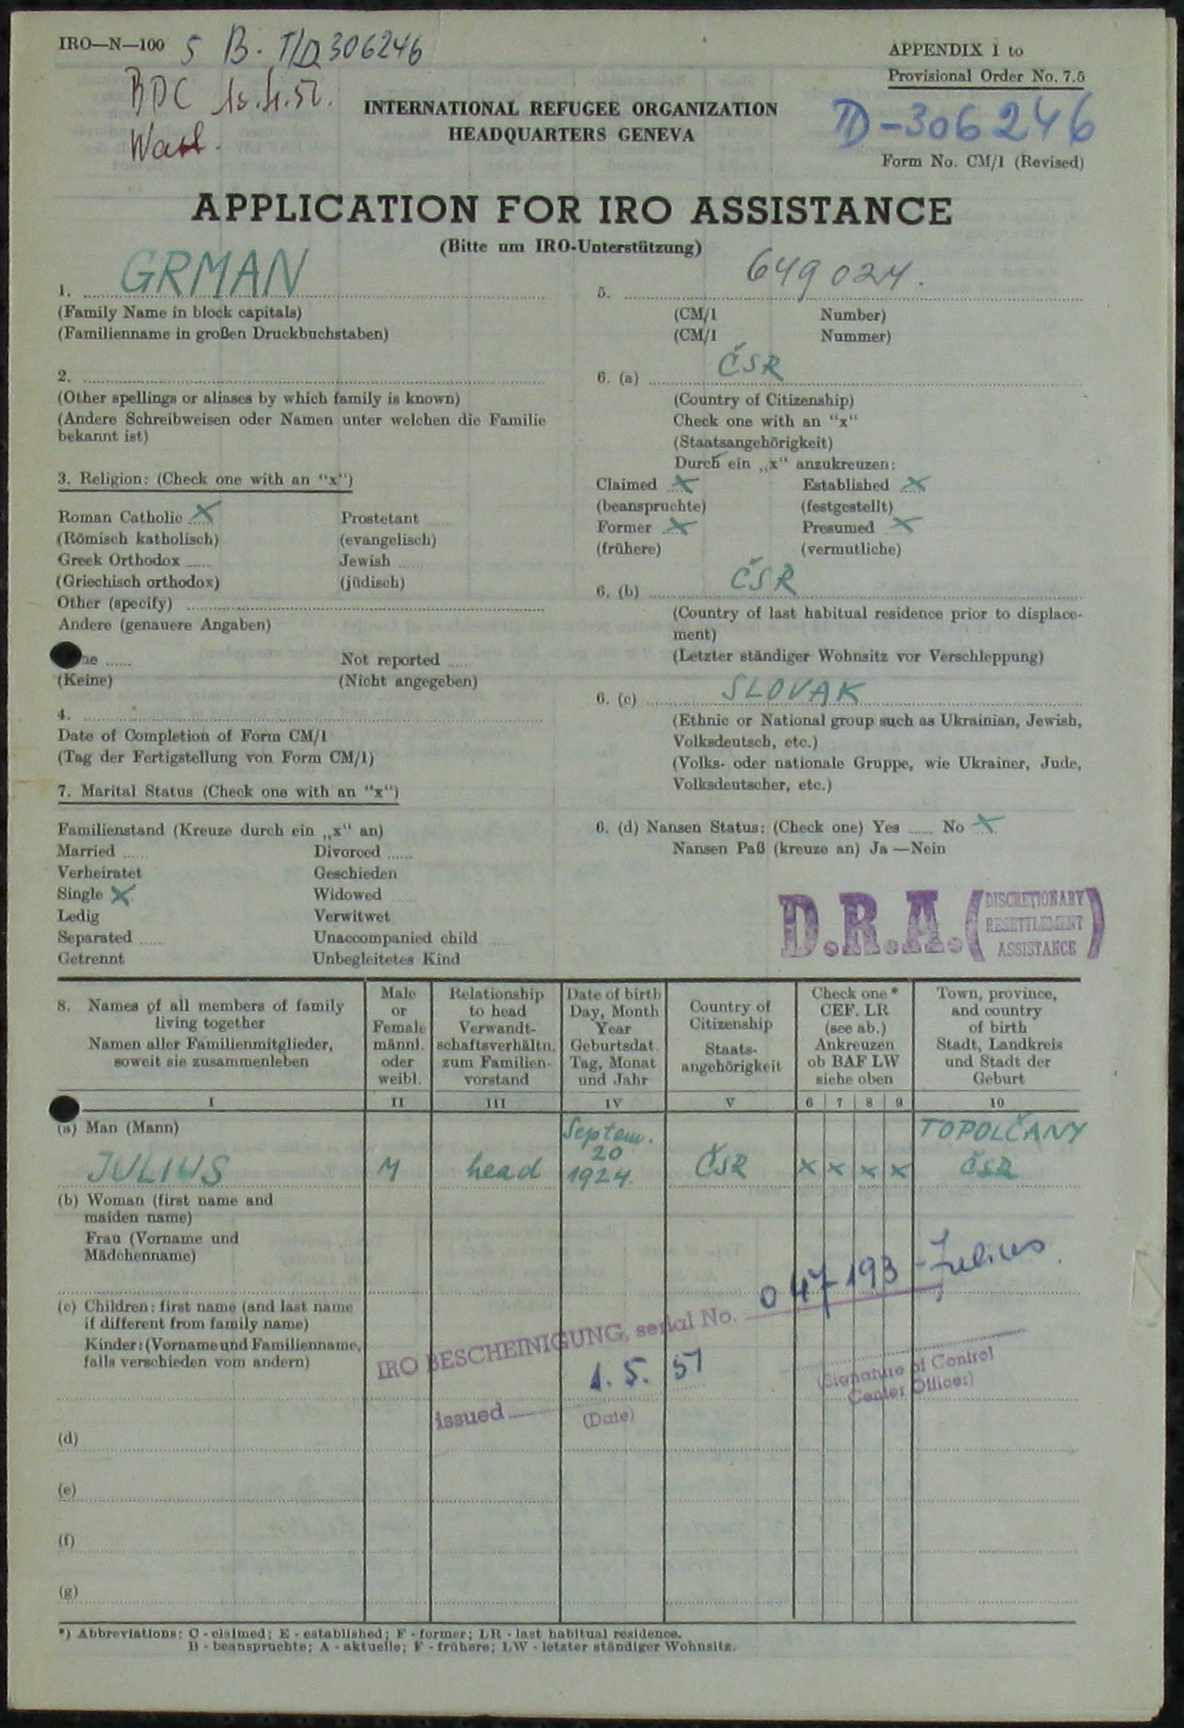 IRO—N—100 5 B. T/D 306246
APPENDIX 1 to
Provisional Order No. 7.5
BDC
INTERNATIONAL REFUGEE ORGANIZATION
HEADQUARTERS GENEVA
TD-306246
Form No. CM/1 (Revised)
APPLICATION FOR IRO ASSISTANCE
(Bitte um IRO-Unterstützung)
1. GRMAN
(Family Name in block capitals)
(Familienname in großen Druckbuchstaben)
2.
(Other spellings or aliases by which family is known)
(Andere Schreibweisen oder Namen unter welchen die Familie
bekannt ist)
3. Religion: (Check one with an "x")
Roman Catholic X Prostetant
(Römisch katholisch) (evangelisch)
Greek Orthodox Jewish
(Griechisch orthodox) (jüdisch)
Other (specify)
Andere (genauere Angaben)
Not reported
(Keine) (Nicht angegeben)
4.
Date of Completion of Form CM/1
(Tag der Fertigstellung von Form CM/1)
7. Marital Status (Check one with an "x")
Familienstand (Kreuze durch ein „x" an)
Married Divorced
Verheiratet Geschieden
Single X Widowed
Ledig Verwitwet
Separated Unaccompanied child
Getrennt Unbegleitetes Kind
5. 649024.
(CM/1 Number)
(CM/1 Nummer)
6. (a) ČSR
(Country of Citizenship)
Check one with an "x"
(Staatsangehörigkeit)
Durch ein „x" anzukreuzen:
Claimed X Established X
(beanspruchte) (festgestellt)
Former X Presumed X
(frühere) (vermutliche)
6. (b) ČSR
(Country of last habitual residence prior to displace-
ment)
(Letzter ständiger Wohnsitz vor Verschleppung)
6. (c) SLOVAK
(Ethnic or National group such as Ukrainian, Jewish,
Volksdeutsch, etc.)
(Volks- oder nationale Gruppe, wie Ukrainer, Jude,
Volksdeutscher, etc.)
6. (d) Nansen Status: (Check one) Yes No X
Nansen Paß (kreuze an) Ja —Nein
D.R.A. (DISCRETIONARY
RESETTLEMENT
ASSISTANCE)
8. Names of all members of family
living together
Namen aller Familienmitglieder,
soweit sie zusammenleben
Male
or
Female
männl.
oder
weibl.
Relationship
to head
Verwandt-
schaftsverhältn.
zum Familien-
vorstand
Date of birth
Day, Month
Year
Geburtsdat.
Tag, Monat
und Jahr
Country of
Citizenship
Staats-
angehörigkeit
Check one *
CEF. LR
(see ab.)
Ankreuzen
ob BAF LW
siehe oben
Town, province,
and country
of birth
Stadt, Landkreis
und Stadt der
Geburt
I II III IV V 6 7 8 9 10
(a) Man (Mann)
JULIUS M head Septem. 20 1924. ČSR X X X X TOPOLČANY ČSR
(b) Woman (first name and
maiden name)
Frau (Vorname und
Mädchenname)
(c) Children: first name (and last name
if different from family name)
Kinder: (Vorname und Familienname,
falls verschieden vom andern)
IRO BESCHEINIGUNG, serial No. 047193 - Julius
issued 1. 5. 51
(Date)
(Signature of Control
Center Officer)
(d)
(e)
(f)
(g)
*) Abbreviations: C - claimed; E - established; F - former; LR - last habitual residence.
B - beanspruchte; A - aktuelle; F - frühere; LW - letzter ständiger Wohnsitz.